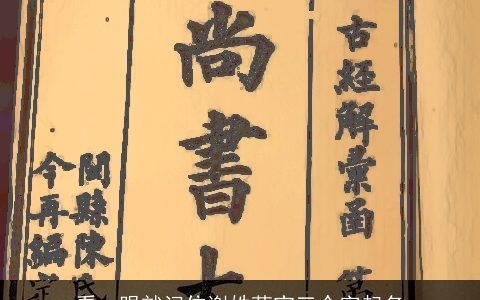 古經解彙函
尚書大
閩縣陳氏
今再編定
看一眼就记住谢姓字三个字起名